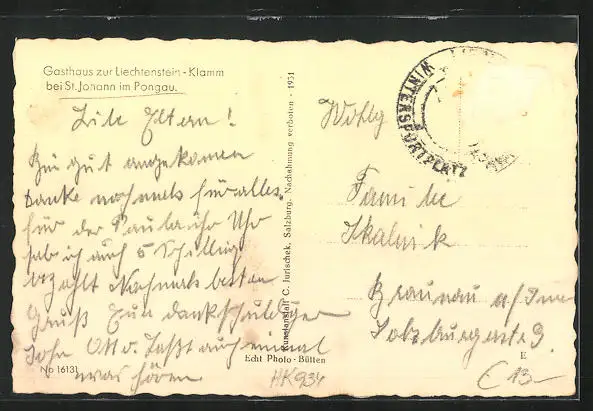 Gasthaus zur Liechtenstein - Klamm
bei St. Johann im Pongau.
Liebe Eltern!
Bin gut angekommen
Danke nochmals für alles.
für der Paula ihr Uhr
hab ich auch 5 Schilling
bezahlt Nochmals besten
Gruß Euer dankschuldiger
Sohn Otto. Laßt auch einmal
was hören
No 16131
Kunstanstalt C. Jurischek, Salzburg. Nachahmung verboten - 1951
Echt Photo - Bütten
WINTERSPORTPLATZ
Familie
Skalnik
Braunau a/Inn
Salzburgerstr.
E
HK934
€ 13.-